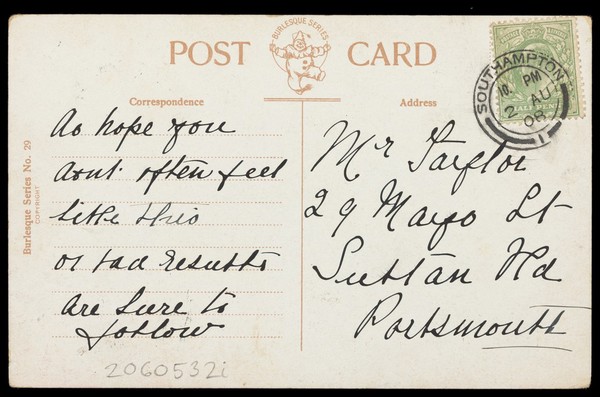 BURLESQUE SERIES
POST CARD
Correspondence
Address
Burlesque Series No. 29
COPYRIGHT
SOUTHAMPTON
10. PM
2 AU
08
1
HALFPENNY
As hope you
dont often feel
like this
or bad results
are sure to
follow
Mr Taylor
29 Mayo St
Suttan Rd
Portsmouth
2060532i